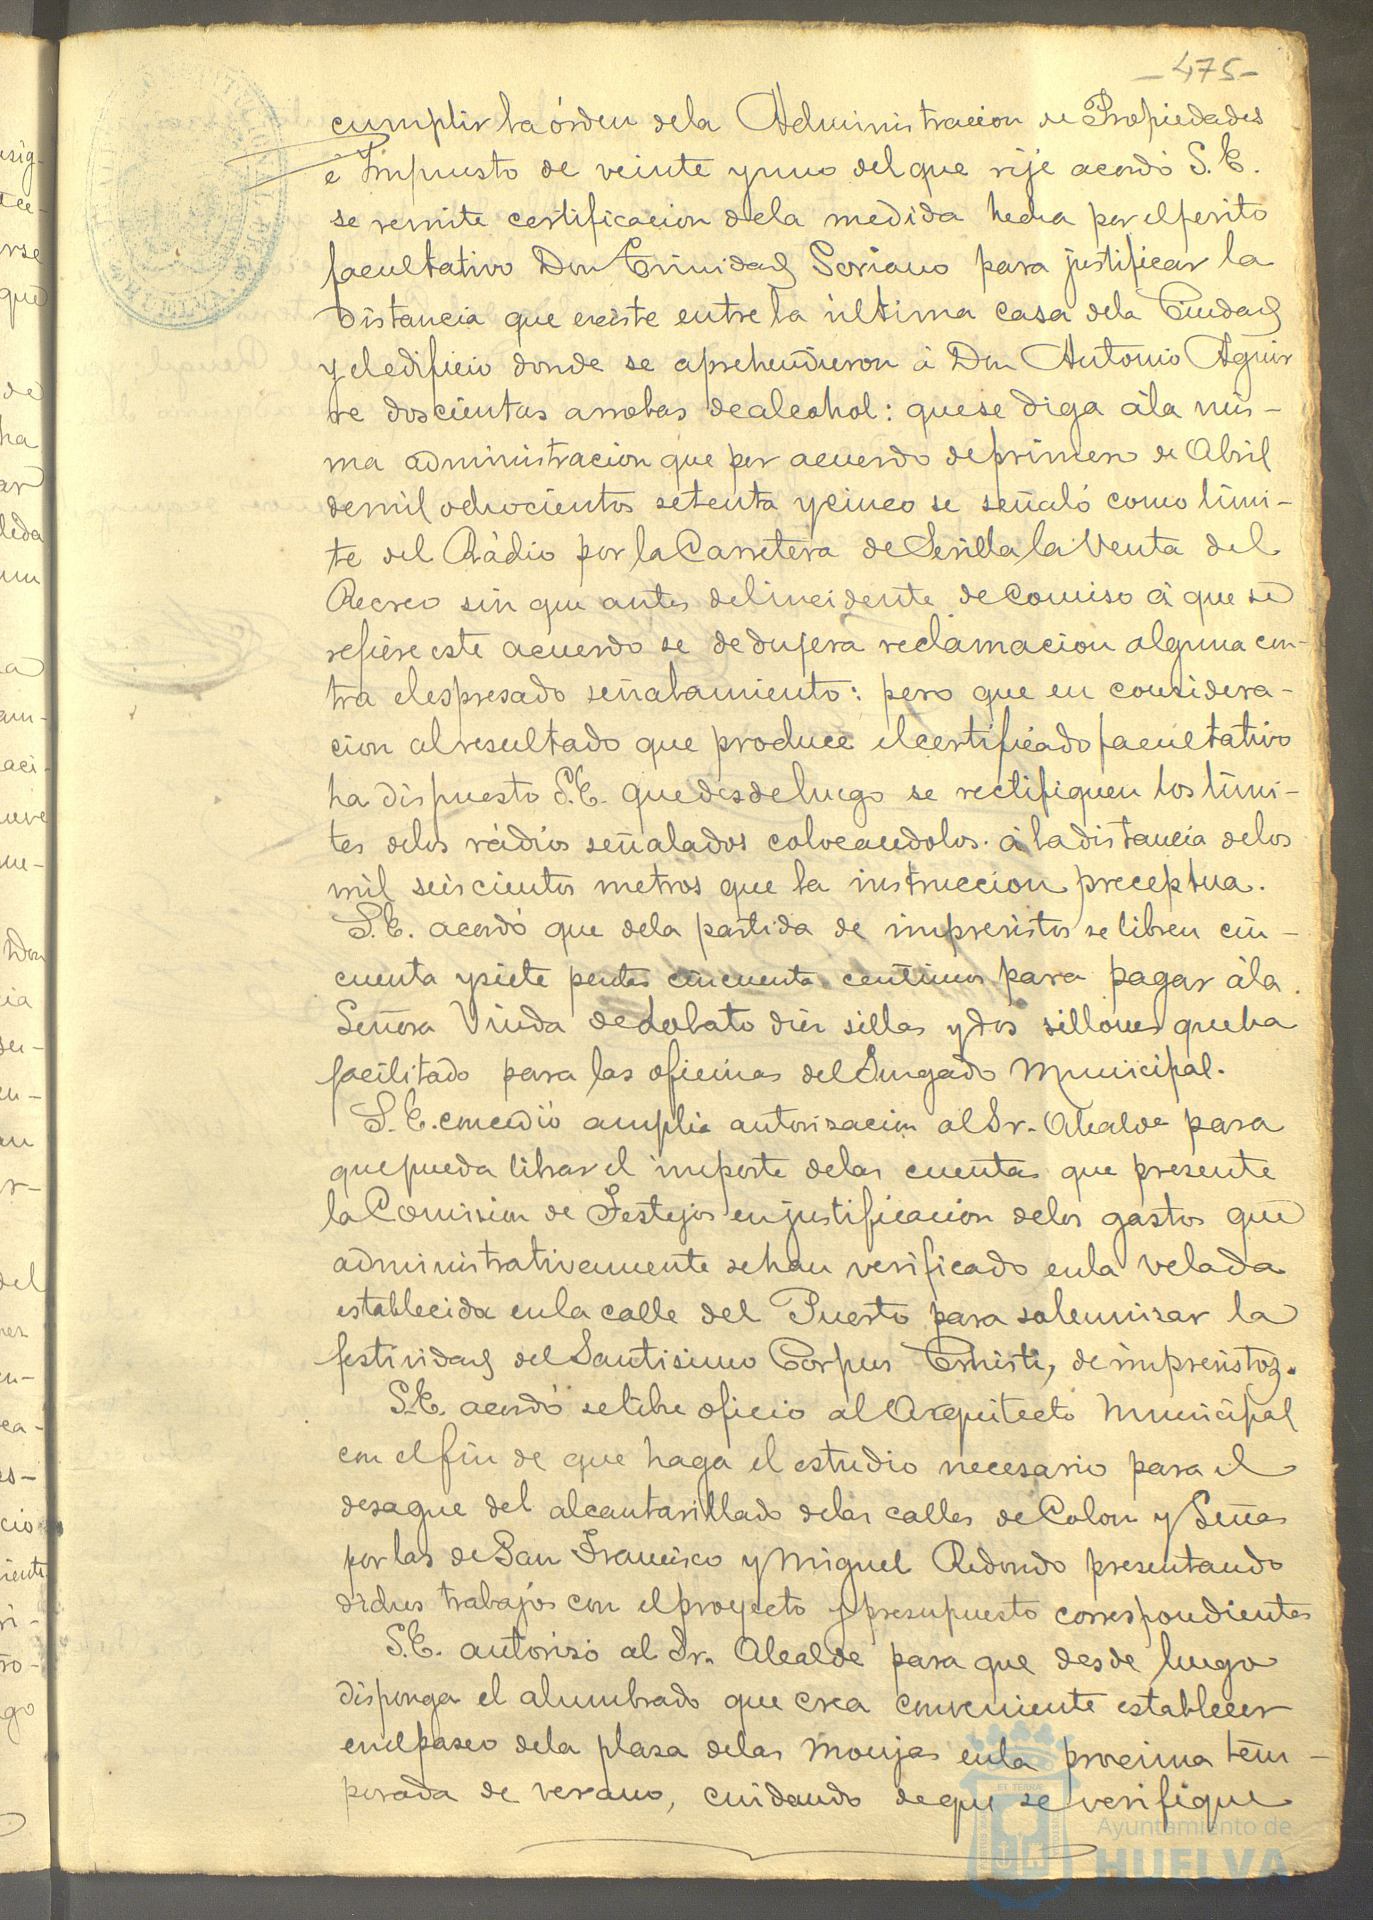 -475-
cumplir la órden dela Administracion de Propiedades
é Impuesto de veinte y uno del que rije acordó S. E.
se remite certificacion dela medida hecha por el perito
facultativo Don Trinidad Soriano para justificar la
distancia que existe entre la última casa dela Ciudad
y el edificio donde se aprehendieron á Don Antonio Aguir
re doscientas arrobas de alcohol: que se diga á la mis-
ma administracion que por acuerdo de primero de Abril
de mil ochocientos setenta y cinco se señaló como lími-
te del Rádio por la Carretera de Sevilla la Venta del
Recreo sin que antes del incidente de Comiso á que se
refiere este acuerdo se dedujera reclamacion alguna con-
tra el espresado señalamiento: pero que en considera-
cion al resultado que produce el certificado facultativo
ha dispuesto S.E. que desde luego se rectifiquen los lími-
tes delos rádios señalados colocandolos á la distancia delos
mil seiscientos metros que la instruccion preceptua.
S.E. acordó que dela partida de imprevistos se libren cin-
cuenta y siete pestas cincuenta centimos para pagar á la
Señora Viuda de Lobato diez sillas y dos sillones que ha
facilitado para las oficinas del Jurgado Municipal.
S.E. concedió amplia autorisacion al Sr. Alcalde para
que pueda librar el importe delas cuentas que presente
la Comision de Festejos en justificacion delos gastos que
administrativamente se han verificado en la velada
establecida en la calle del Puerto para solemnisar la
festividad del Santisimo Corpus Christi, de imprevistos.
S.E. acordó se libre oficio al Arquitecto Municipal
con el fin de que haga el estudio necesario para el
desague del alcantarillado delas calles de Colon y Señas
por las de San Francisco y Miguel Redondo presentando
dichos trabajos con el proyecto y presupuesto correspondientes
S.E. autorisó al Sr. Alcalde para que desde luego
disponga el alumbrado que crea conveniente establecer
en el paseo dela plasa delas Monjas en la procsima tem-
porada de verano, cuidando de que se verifique
Ayuntamiento de
HUELVA